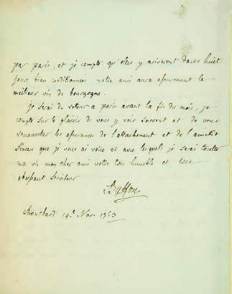 par paris, et je compte qu'elles y arriveront dans huit
jours bien conditionnées votre ami aura surement le
meilleur vin de bourgogne.
je serai de retour a paris avant la fin du mois, je
compte sur le plaisir de vous y voir souvent et de vous
renouveler les assurances de l'attachement et de l'amitié
sincere que je vous ai voués et avec lesquels je serai toute
ma vie mon cher ami votre très humble et très
obeissant serviteur
Buffon
Montbard 14e Nov. 1763